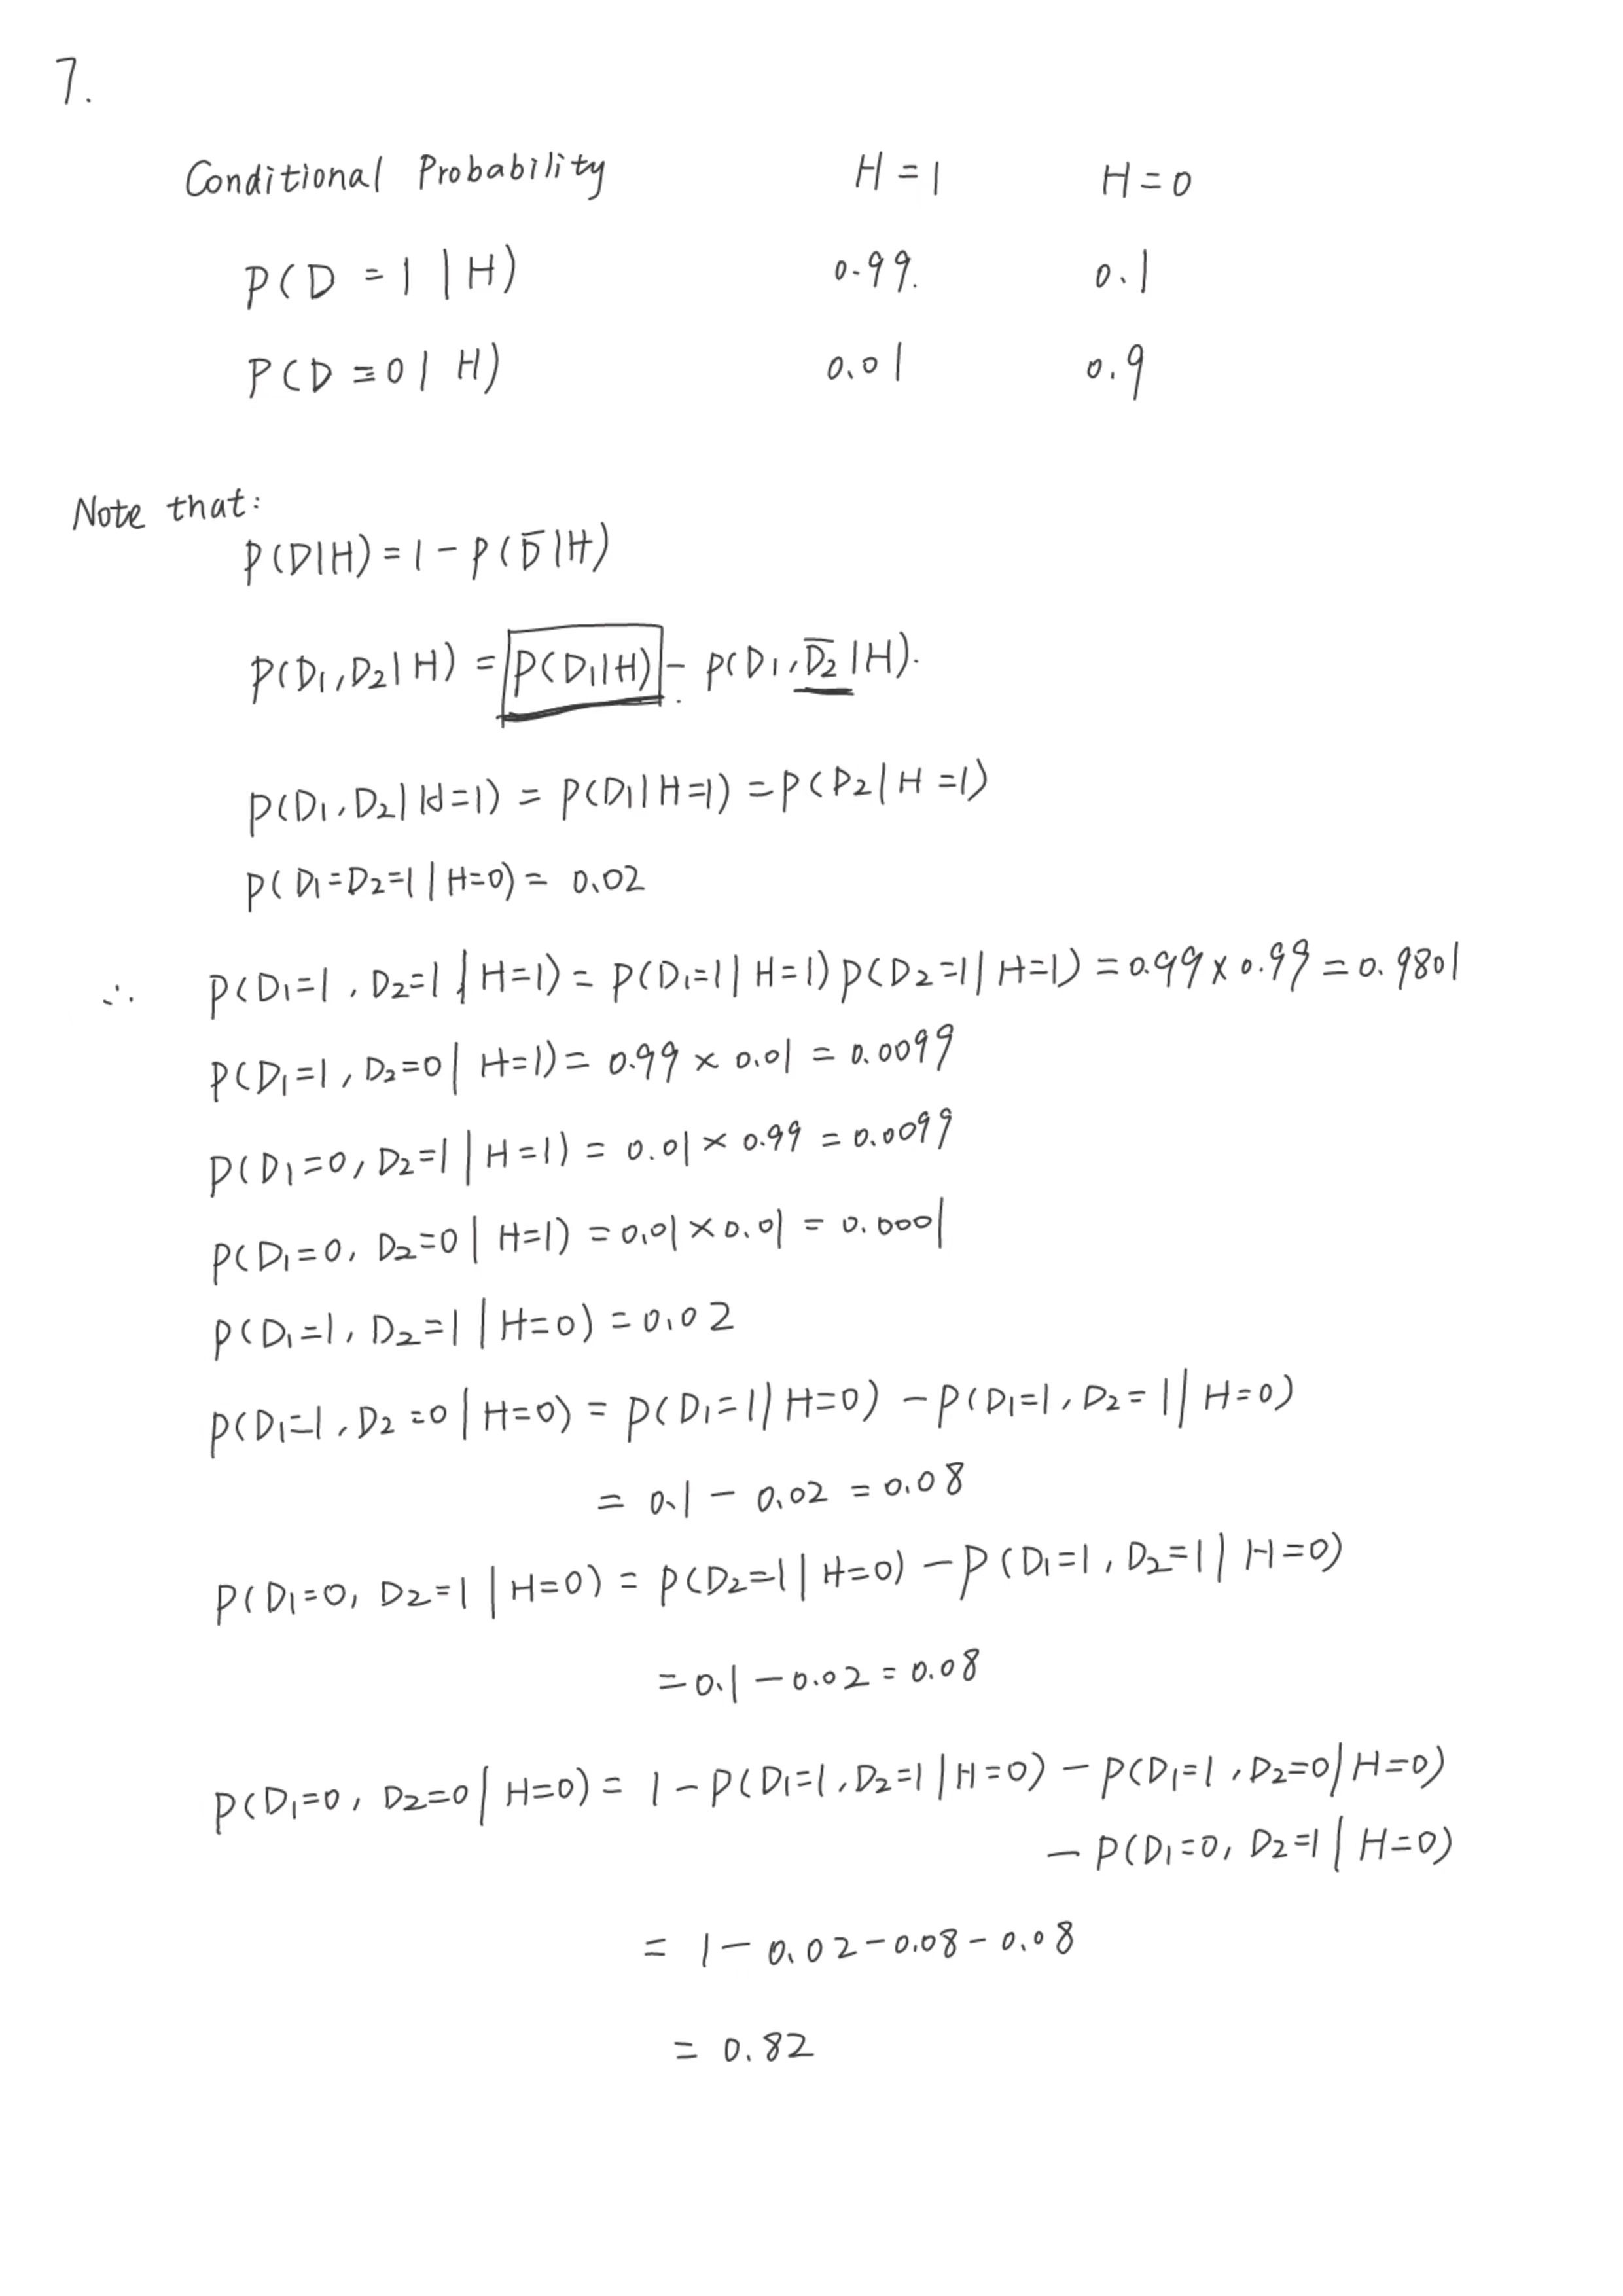 7.
Conditional Probability H = 1 H = 0
P(D = 1 | H) 0.99. 0.1
P(D = 0 | H) 0.01 0.9
Note that:
P(D|H) = 1 - P(D̅|H)
P(D₁,D₂|H) = P(D₁|H) - P(D₁,D̅₂|H).
P(D₁,D₂|H=1) = P(D₁|H=1) = P(D₂|H=1)
P(D₁=D₂=1|H=0) = 0.02
∴ P(D₁=1, D₂=1|H=1) = P(D₁=1|H=1)P(D₂=1|H=1) = 0.99 × 0.99 = 0.9801
P(D₁=1, D₂=0|H=1) = 0.99 × 0.01 = 0.0099
P(D₁=0, D₂=1|H=1) = 0.01 × 0.99 = 0.0099
P(D₁=0, D₂=0|H=1) = 0.01 × 0.01 = 0.0001
P(D₁=1, D₂=1|H=0) = 0.02
P(D₁=1, D₂=0|H=0) = P(D₁=1|H=0) - P(D₁=1, D₂=1|H=0)
= 0.1 - 0.02 = 0.08
P(D₁=0, D₂=1|H=0) = P(D₂=1|H=0) - P(D₁=1, D₂=1|H=0)
= 0.1 - 0.02 = 0.08
P(D₁=0, D₂=0|H=0) = 1 - P(D₁=1, D₂=1|H=0) - P(D₁=1, D₂=0|H=0)
- P(D₁=0, D₂=1|H=0)
= 1 - 0.02 - 0.08 - 0.08
= 0.82